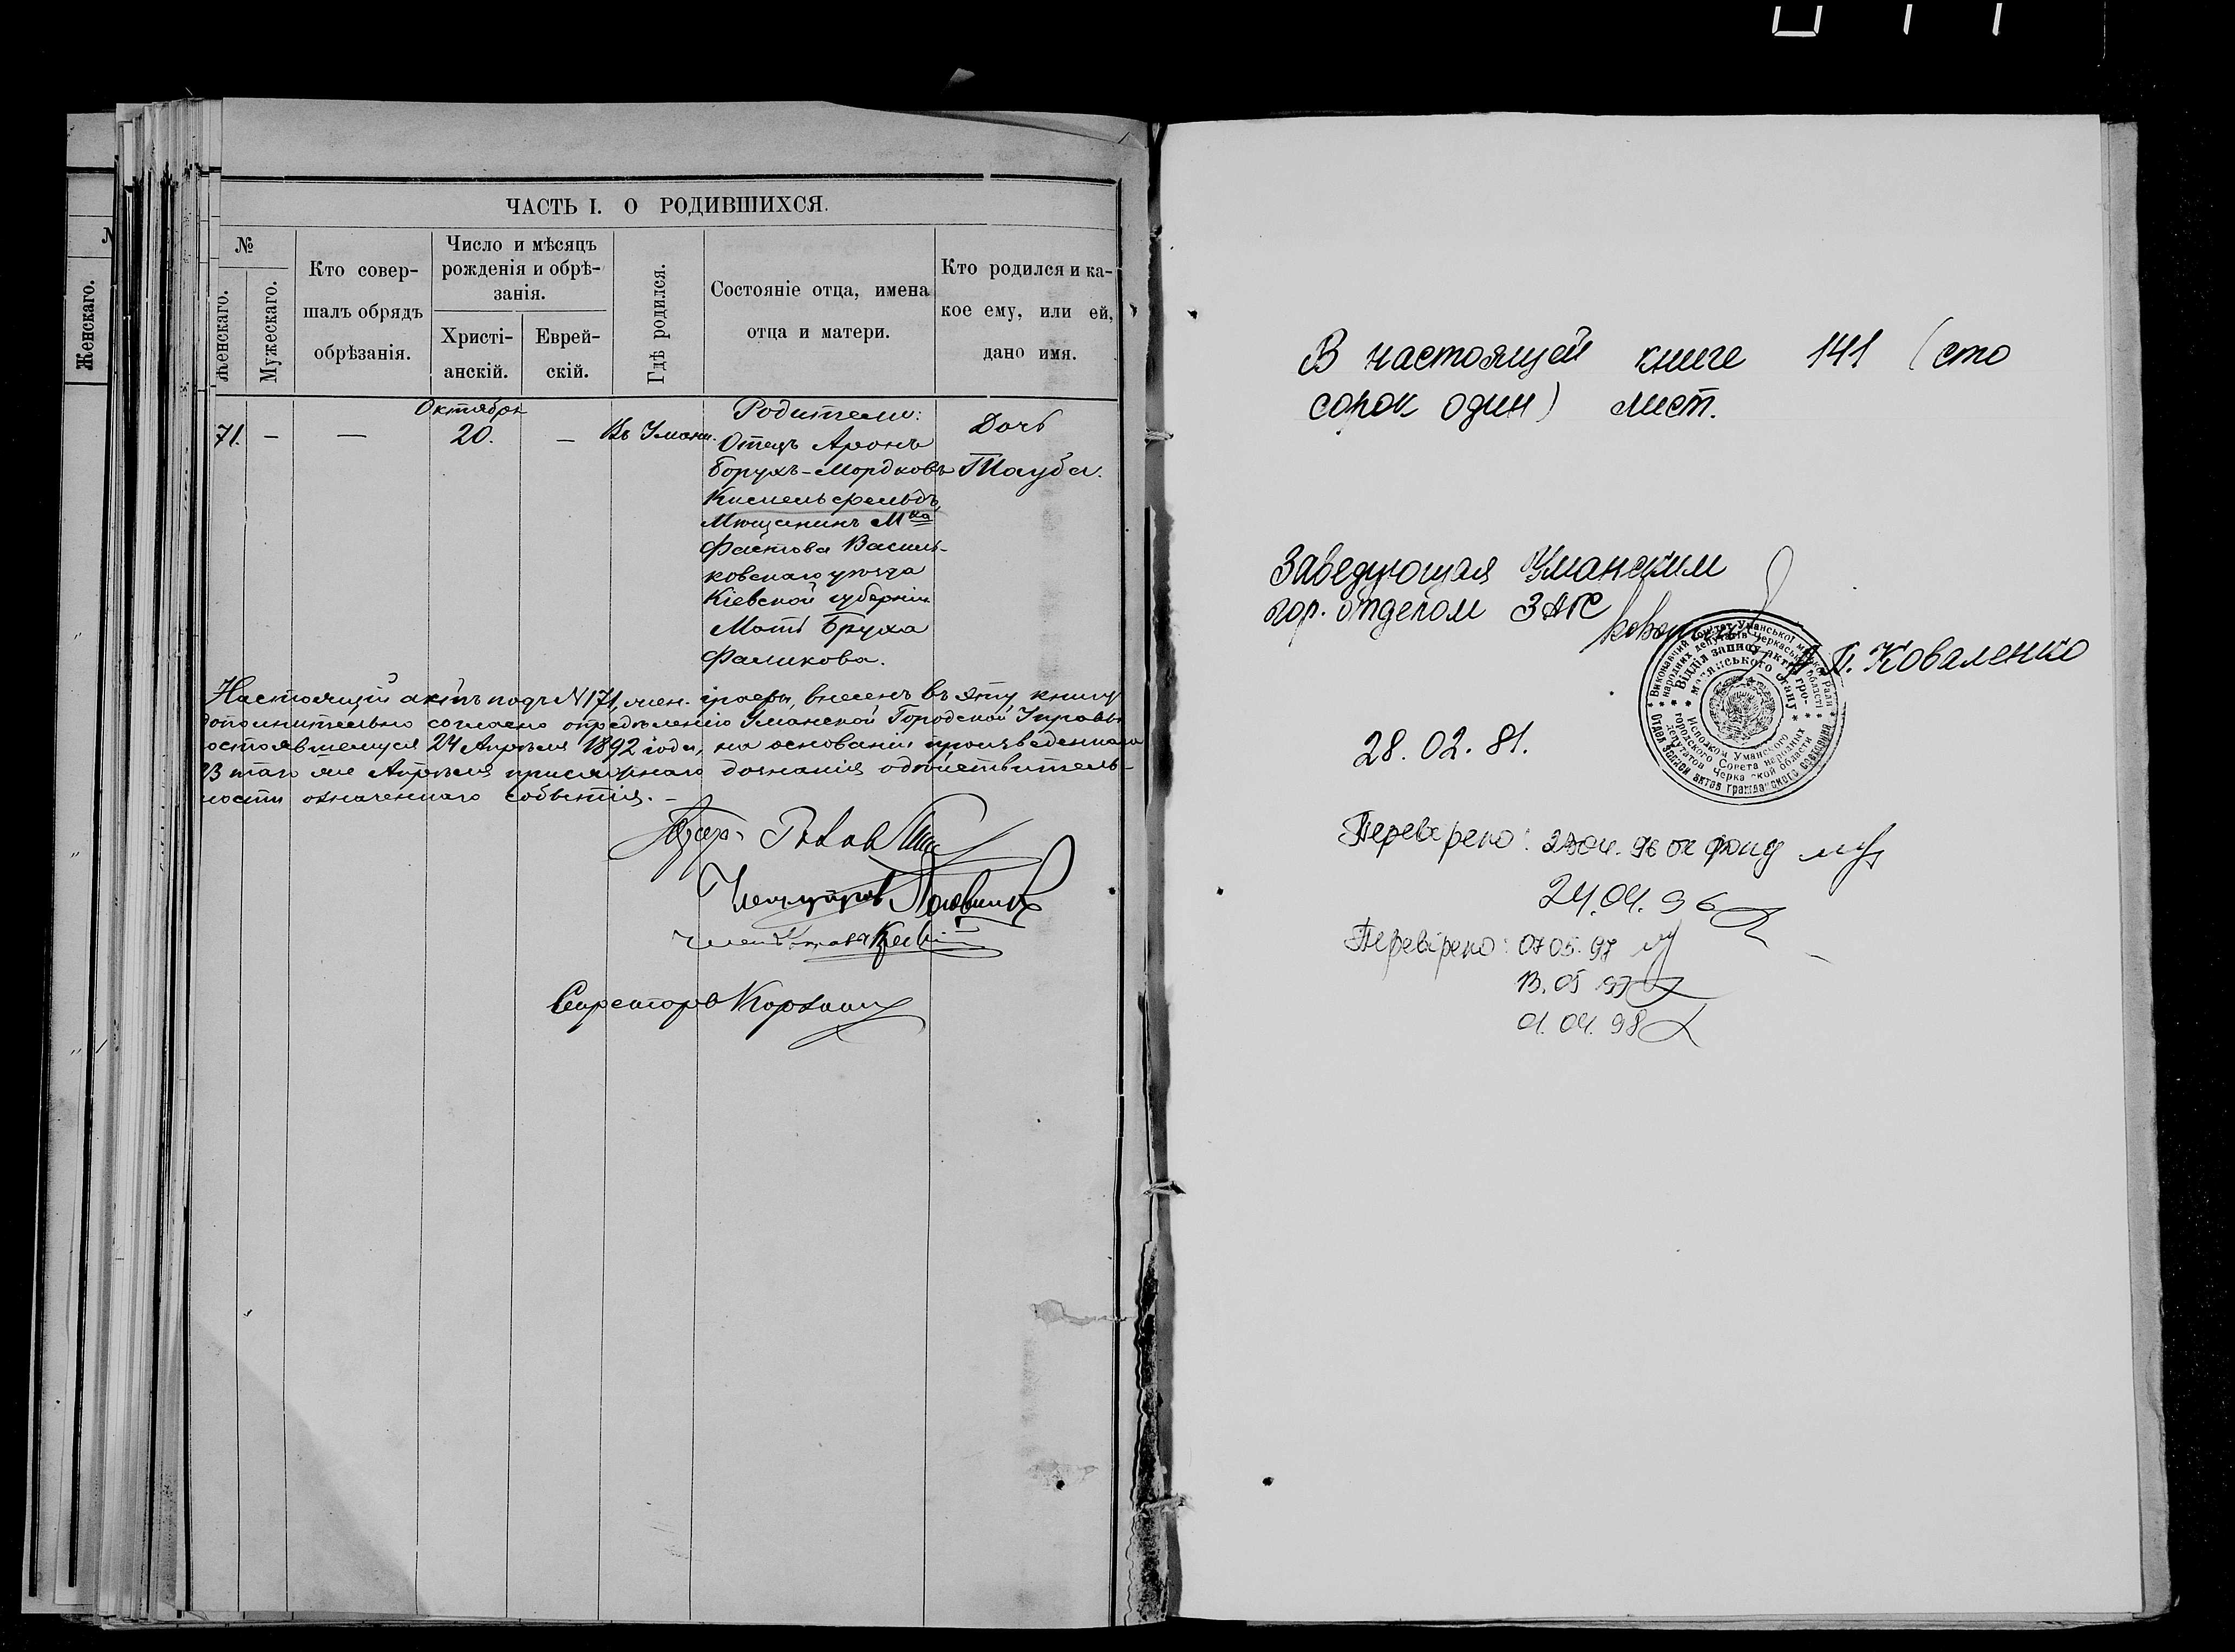 ЧАСТЬ I. О РОДИВШИХСЯ.
№
Женскаго.
Мужескаго.
Кто совер-
шалъ обрядъ
обрѣзанія.
Число и мѣсяцъ
рожденія и обрѣ-
занія.
Христі-
анскій.
Еврей-
скій.
Гдѣ родился.
Состояніе отца, имена
отца и матери.
Кто родился и ка-
кое ему, или ей,
дано имя.
Женскаго.
71.
—
—
Октября
20.
—
Въ Умани.
Родители:
Отецъ Аронъ
Борухъ-Мордковъ
Кисельфельдъ,
Мѣщанинъ М<sup>ка</sup>
Фастова Василь-
ковскаго уѣзда
Кіевской губерніи
Мать Бруха
Фаликова.
Дочь
Тауба.
Настоящій актъ подъ N171, жен. графы, внесенъ въ эту книгу
дополнительно согласно опредѣленію Уманской Городской Управы
состоявшемуся 24 Апрѣля 1892 года, на основаніи произведеннаго
23 того же Апрѣля присяжнаго дознанія о дѣйствитель-
ности означеннаго событія. -
Секретарь
В настоящей книге 141 (сто
сорок один) лист.
Заведующая Уманским
гор. отделом ЗАГС
П. Коваленко
Виконавчий комітет Уманської міської Ради
народних депутатів Черкаської області
Відділ запису актів гро-
мадянського стану
Исполком Уманского
городского Совета народных
депутатов Черкасской области
Отдел записи актов гражданского состояния
28.02.81.
Перевірено:
24.04.96
Перевірено: 07.05.97
13.05.97
01.04.98